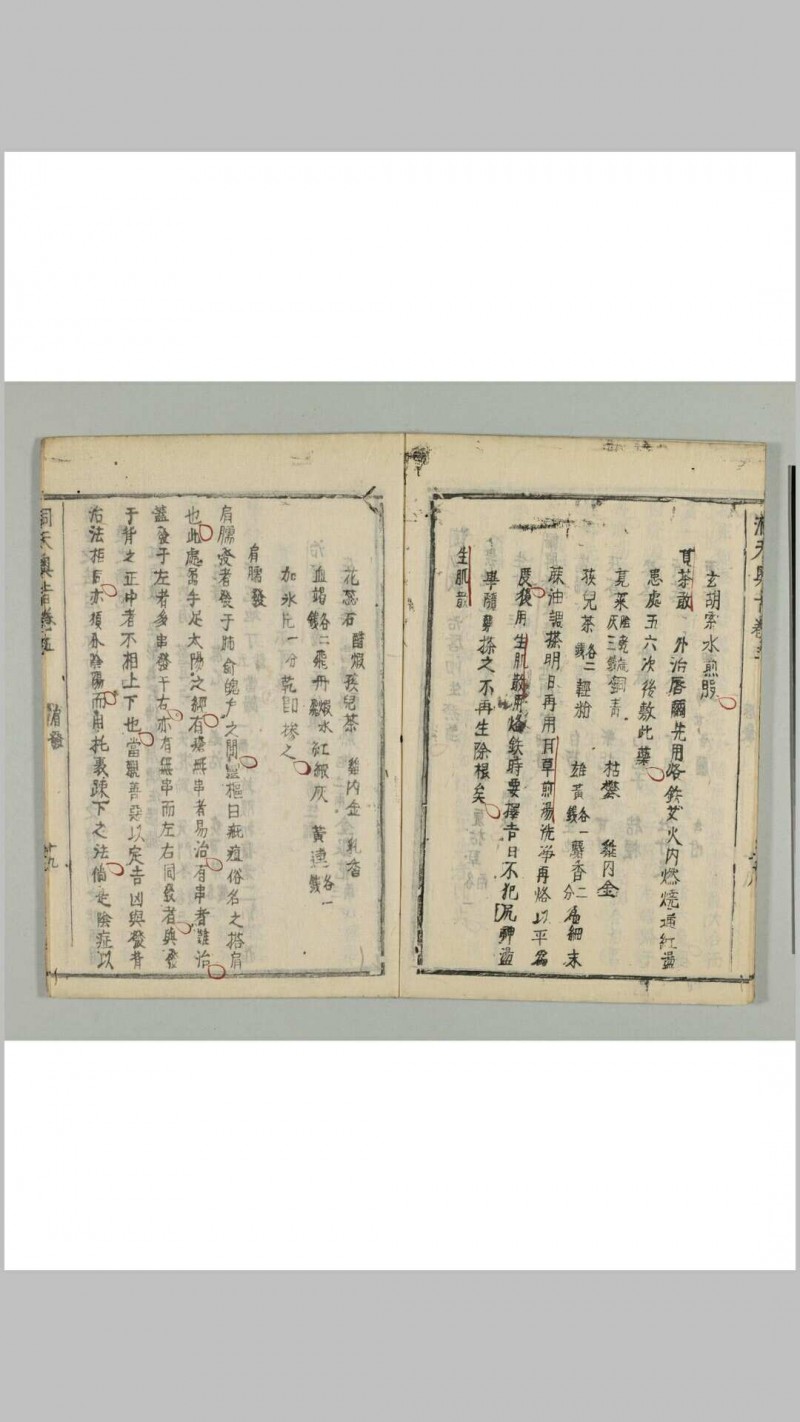 玄胡索水煎服
外治唇𤃉先用烙鉄艾火内燃燒通紅盪
患處五六次後敷此藥
莧菜灰三錢 銅青 枯礬 雞内金
孩兒茶各二錢 輕粉 雄黃各一錢 麝香二分 為細末
麻油調搽明日再用甘草煎湯洗淨再烙以平為
度後用生肌散用烙鉄時要擇吉日不犯尻神盪
畢隨藥搽之不再生除根矣
生肌散
花蕊石醋煅 孩兒茶 雞内金 乳香
血竭各二錢 飛丹 煅水紅緞灰 黃連各一錢
加氷片一分乾即搽之
肩臑發
肩臑發者發于肺俞魄戶之間靈樞曰疵疽俗名之搭肩
也此處屬手足太陽之經有 無串者易治有串者難治
蓋發于左者多串發于右亦有無串而左右同發者與發
于背之正中者不相上下也當觀善惡以定吉凶與發背
治法相同亦須分陰陽而用托裏疎下之法倘是險症以
洞天奧旨卷五
肩發
廿九